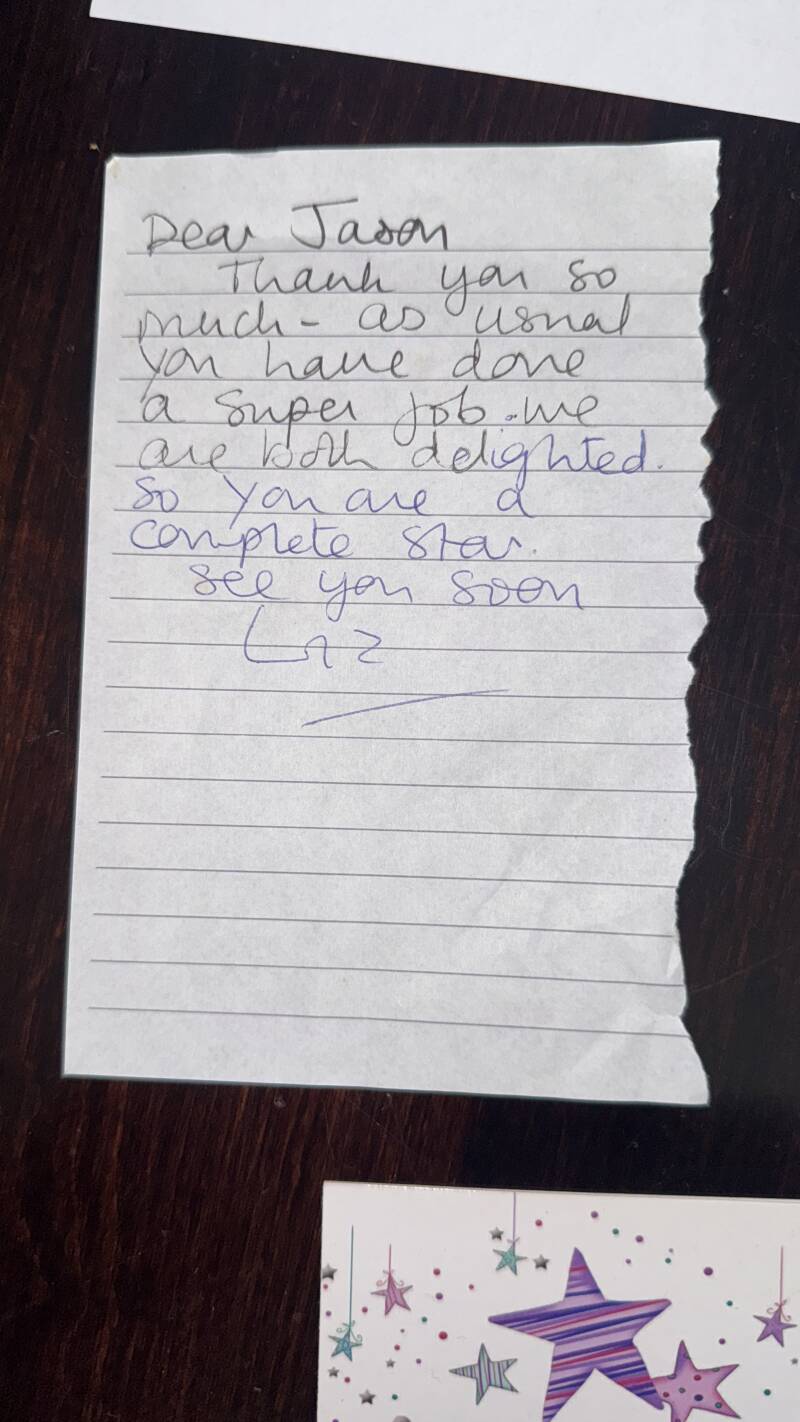 Dear Jason
Thank you so
much - as usual
you have done
a super job. we
are both delighted.
So you are a
complete star.
See you soon
Liz